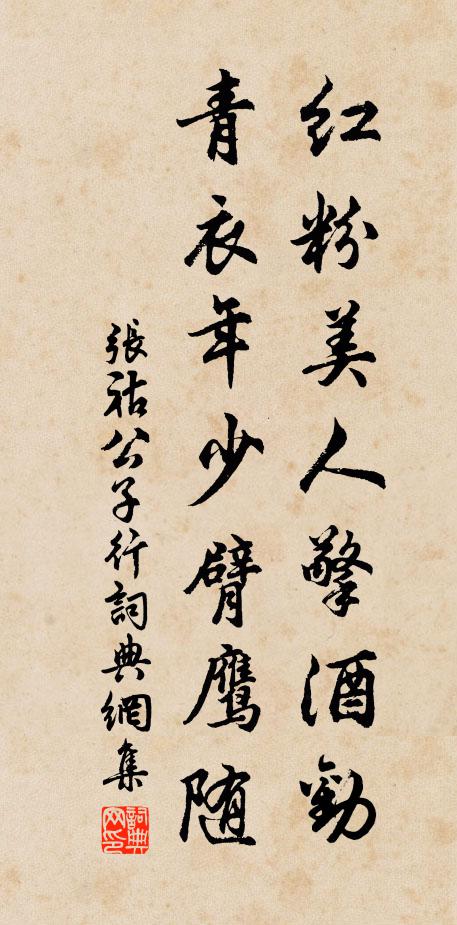 红粉美人擎酒劝
青衣年少臂鹰随
張祜公子行詞典網集
詞典网印